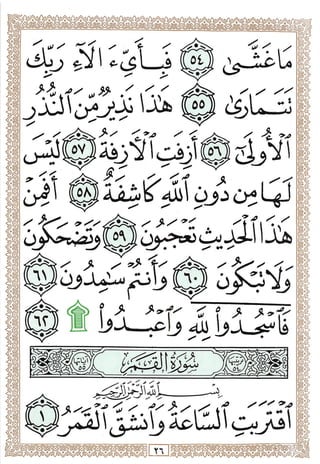 مَا غَشَّىٰ ٥٤ فَبِأَيِّ ءَالَآءِ رَبِّكَ
تَتَمَارَىٰ ٥٥ هَٰذَا نَذِيرٌ مِّنَ ٱلنُّذُرِ
ٱلْأُولَىٰٓ ٥٦ أَزِفَتِ ٱلْأَزِفَةُ ٥٧ لَيْسَ
لَهَا مِن دُونِ ٱللَّهِ كَاشِفَةٌ ٥٨ أَفَمِنْ
هَٰذَا ٱلْحَدِيثِ تَعْجَبُونَ ٥٩ وَتَضْحَكُونَ
وَلَا تَبْكُونَ ٦٠ وَأَنتُمْ سَٰمِدُونَ ٦١
فَٱسْجُدُوا۟ لِلَّهِ وَٱعْبُدُوا۟ ۩ ٦٢
سُورَةُ ٱلْقَمَرِ
بِسْمِ ٱللَّهِ ٱلرَّحْمَٰنِ ٱلرَّحِيمِ
ٱقْتَرَبَتِ ٱلسَّاعَةُ وَٱنشَقَّ ٱلْقَمَرُ ١
٢٦